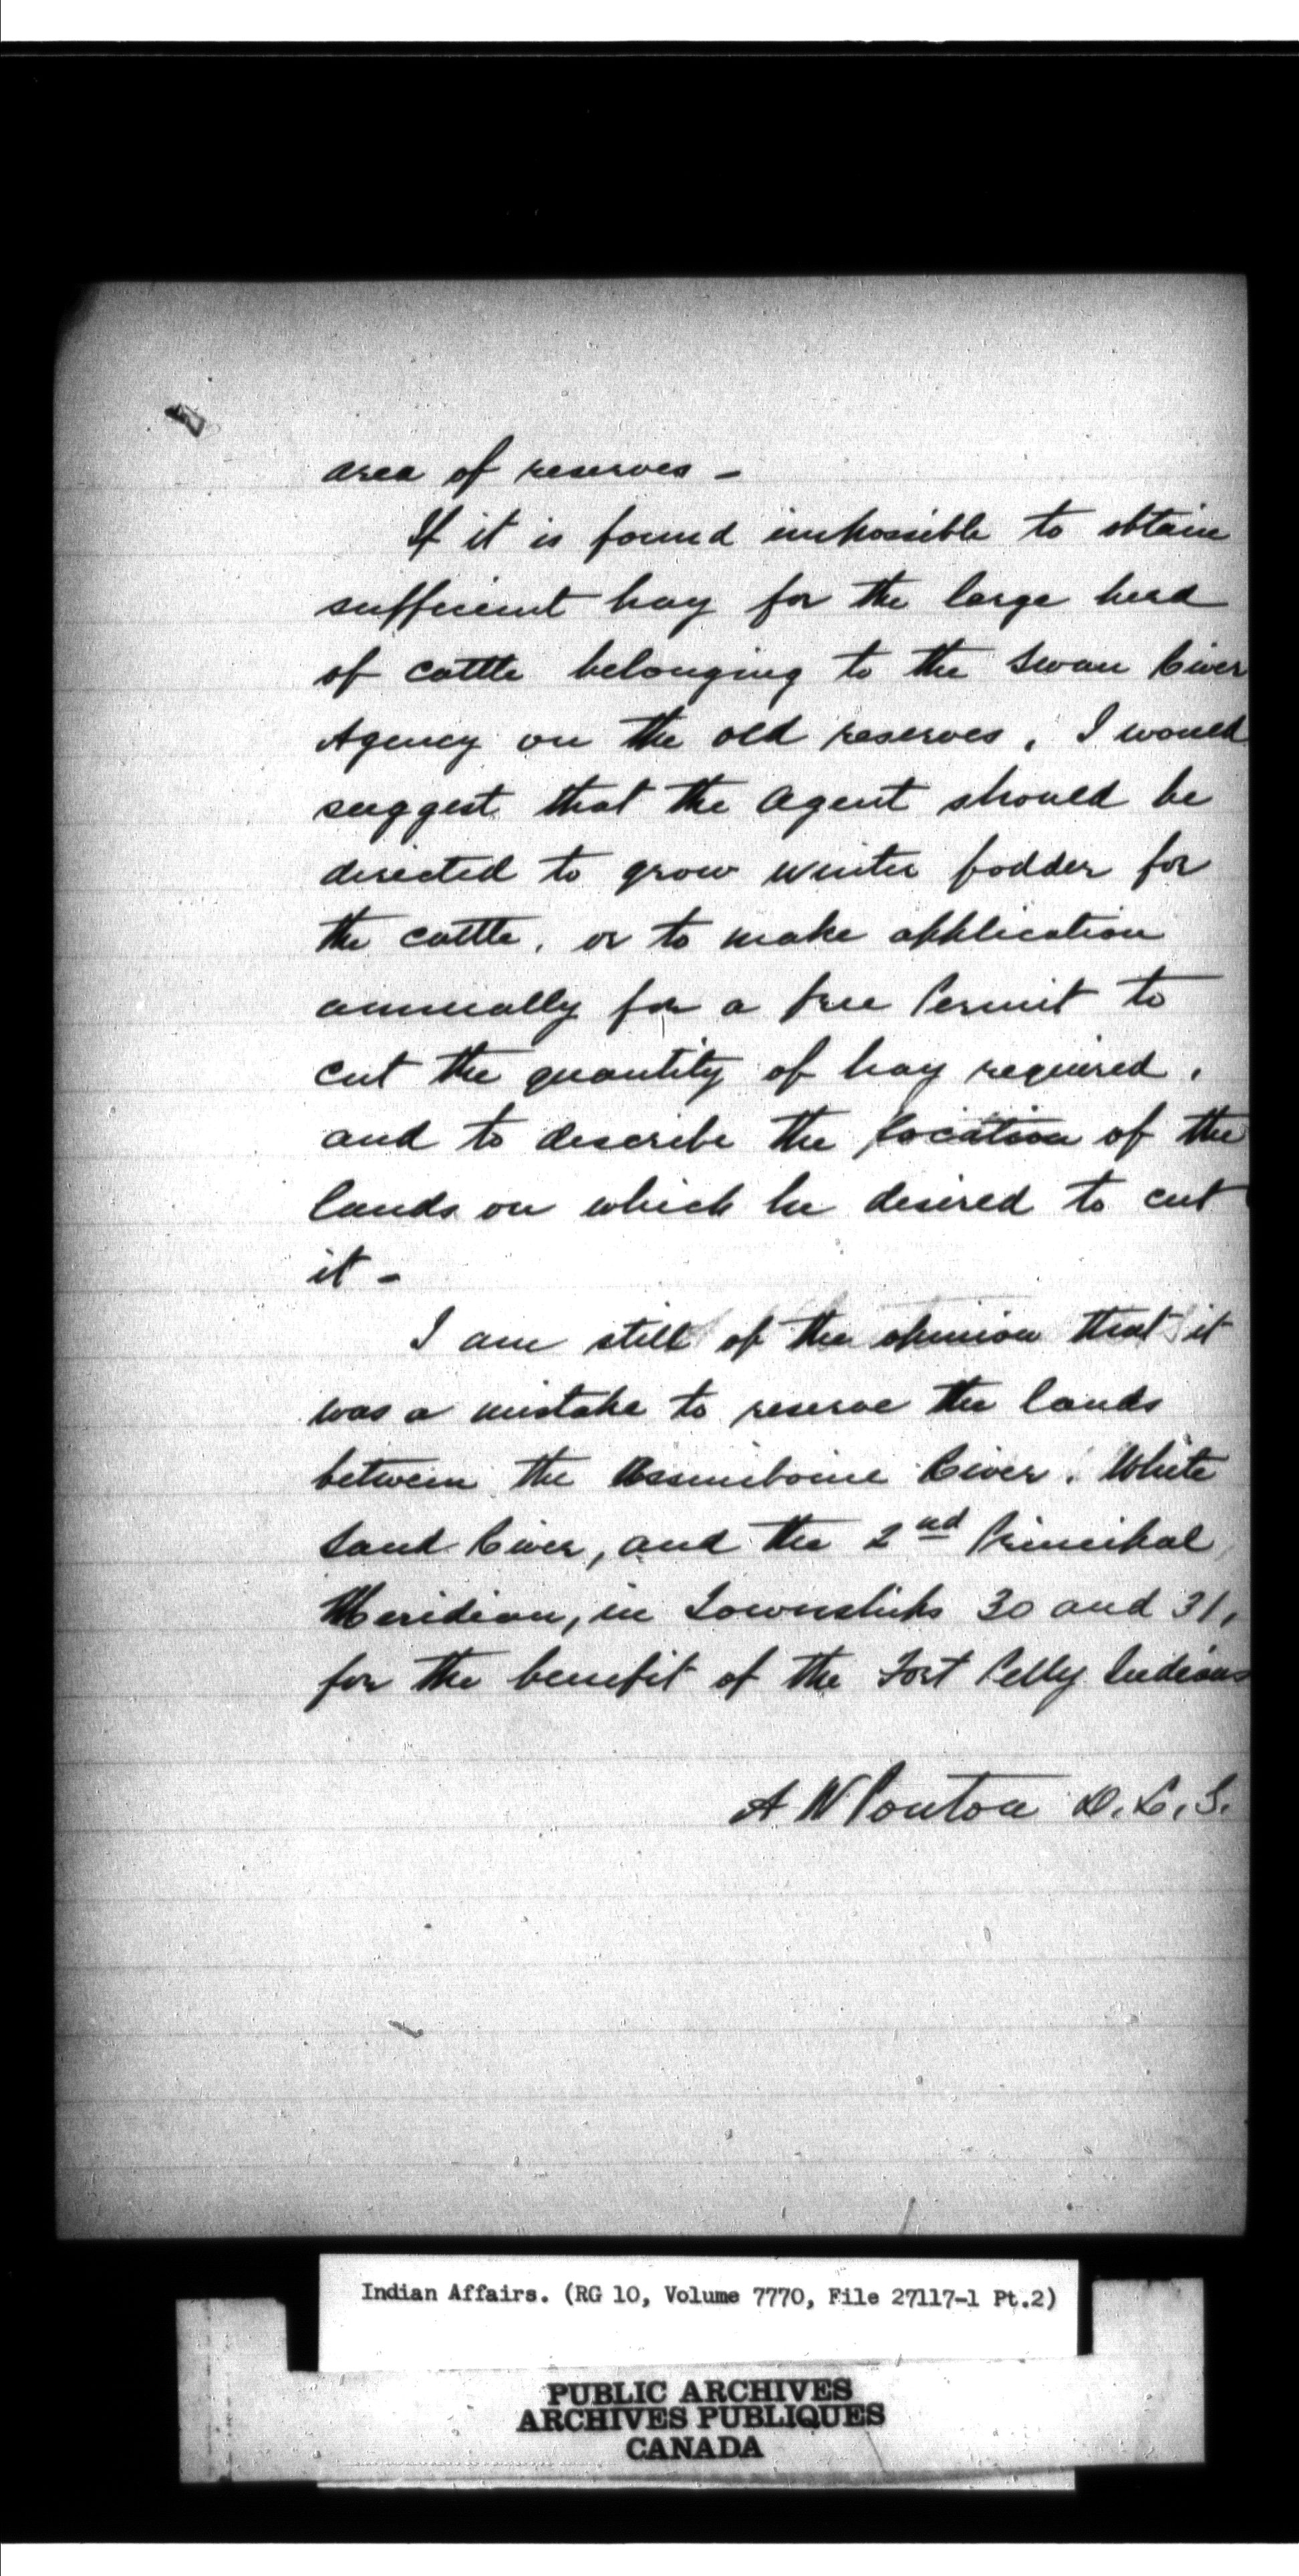 area of reserves -
If it is found impossible to obtain
sufficient hay for the large herd
of cattle belonging to the Swan River
Agency on the old reserves, I would
suggest that the Agent should be
directed to grow winter fodder for
the cattle, or to make application
annually for a free Permit to
cut the quantity of hay required,
and to describe the location of the
lands on which he desired to cut
it -
I am still of the opinion that it
was a mistake to reserve the lands
between the Assiniboine River, White
Sand River, and the 2nd Principal
Meridian, in Townships 30 and 31,
for the benefit of the Fort Pelly Indians
A W Ponton D.L.S.
Indian Affairs. (RG 10, Volume 7770, File 27117-1 Pt.2)
PUBLIC ARCHIVES
ARCHIVES PUBLIQUES
CANADA